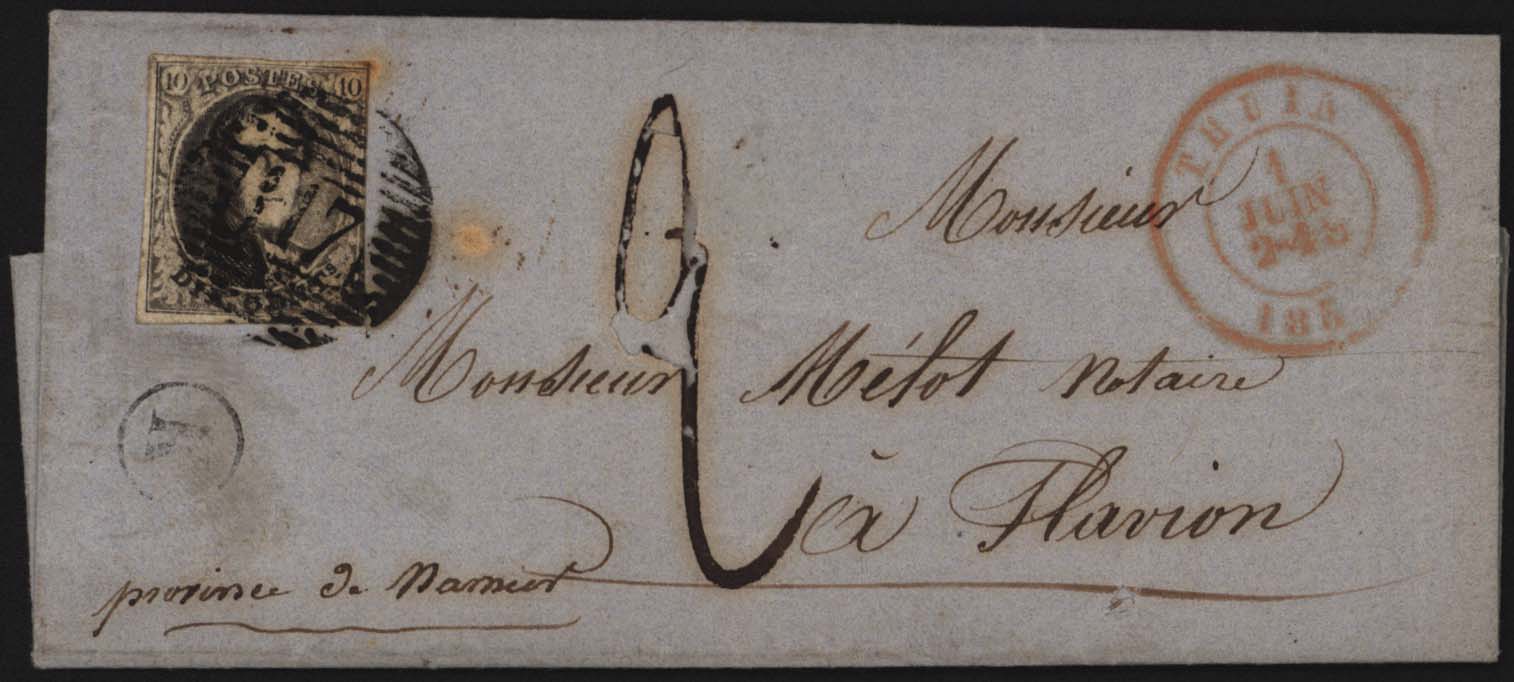 10 POSTES 10
THUIN
1
JUIN
2-4S
185
Monsieur
Monsieur Mélot Notaire
à Flavion
province de Namur